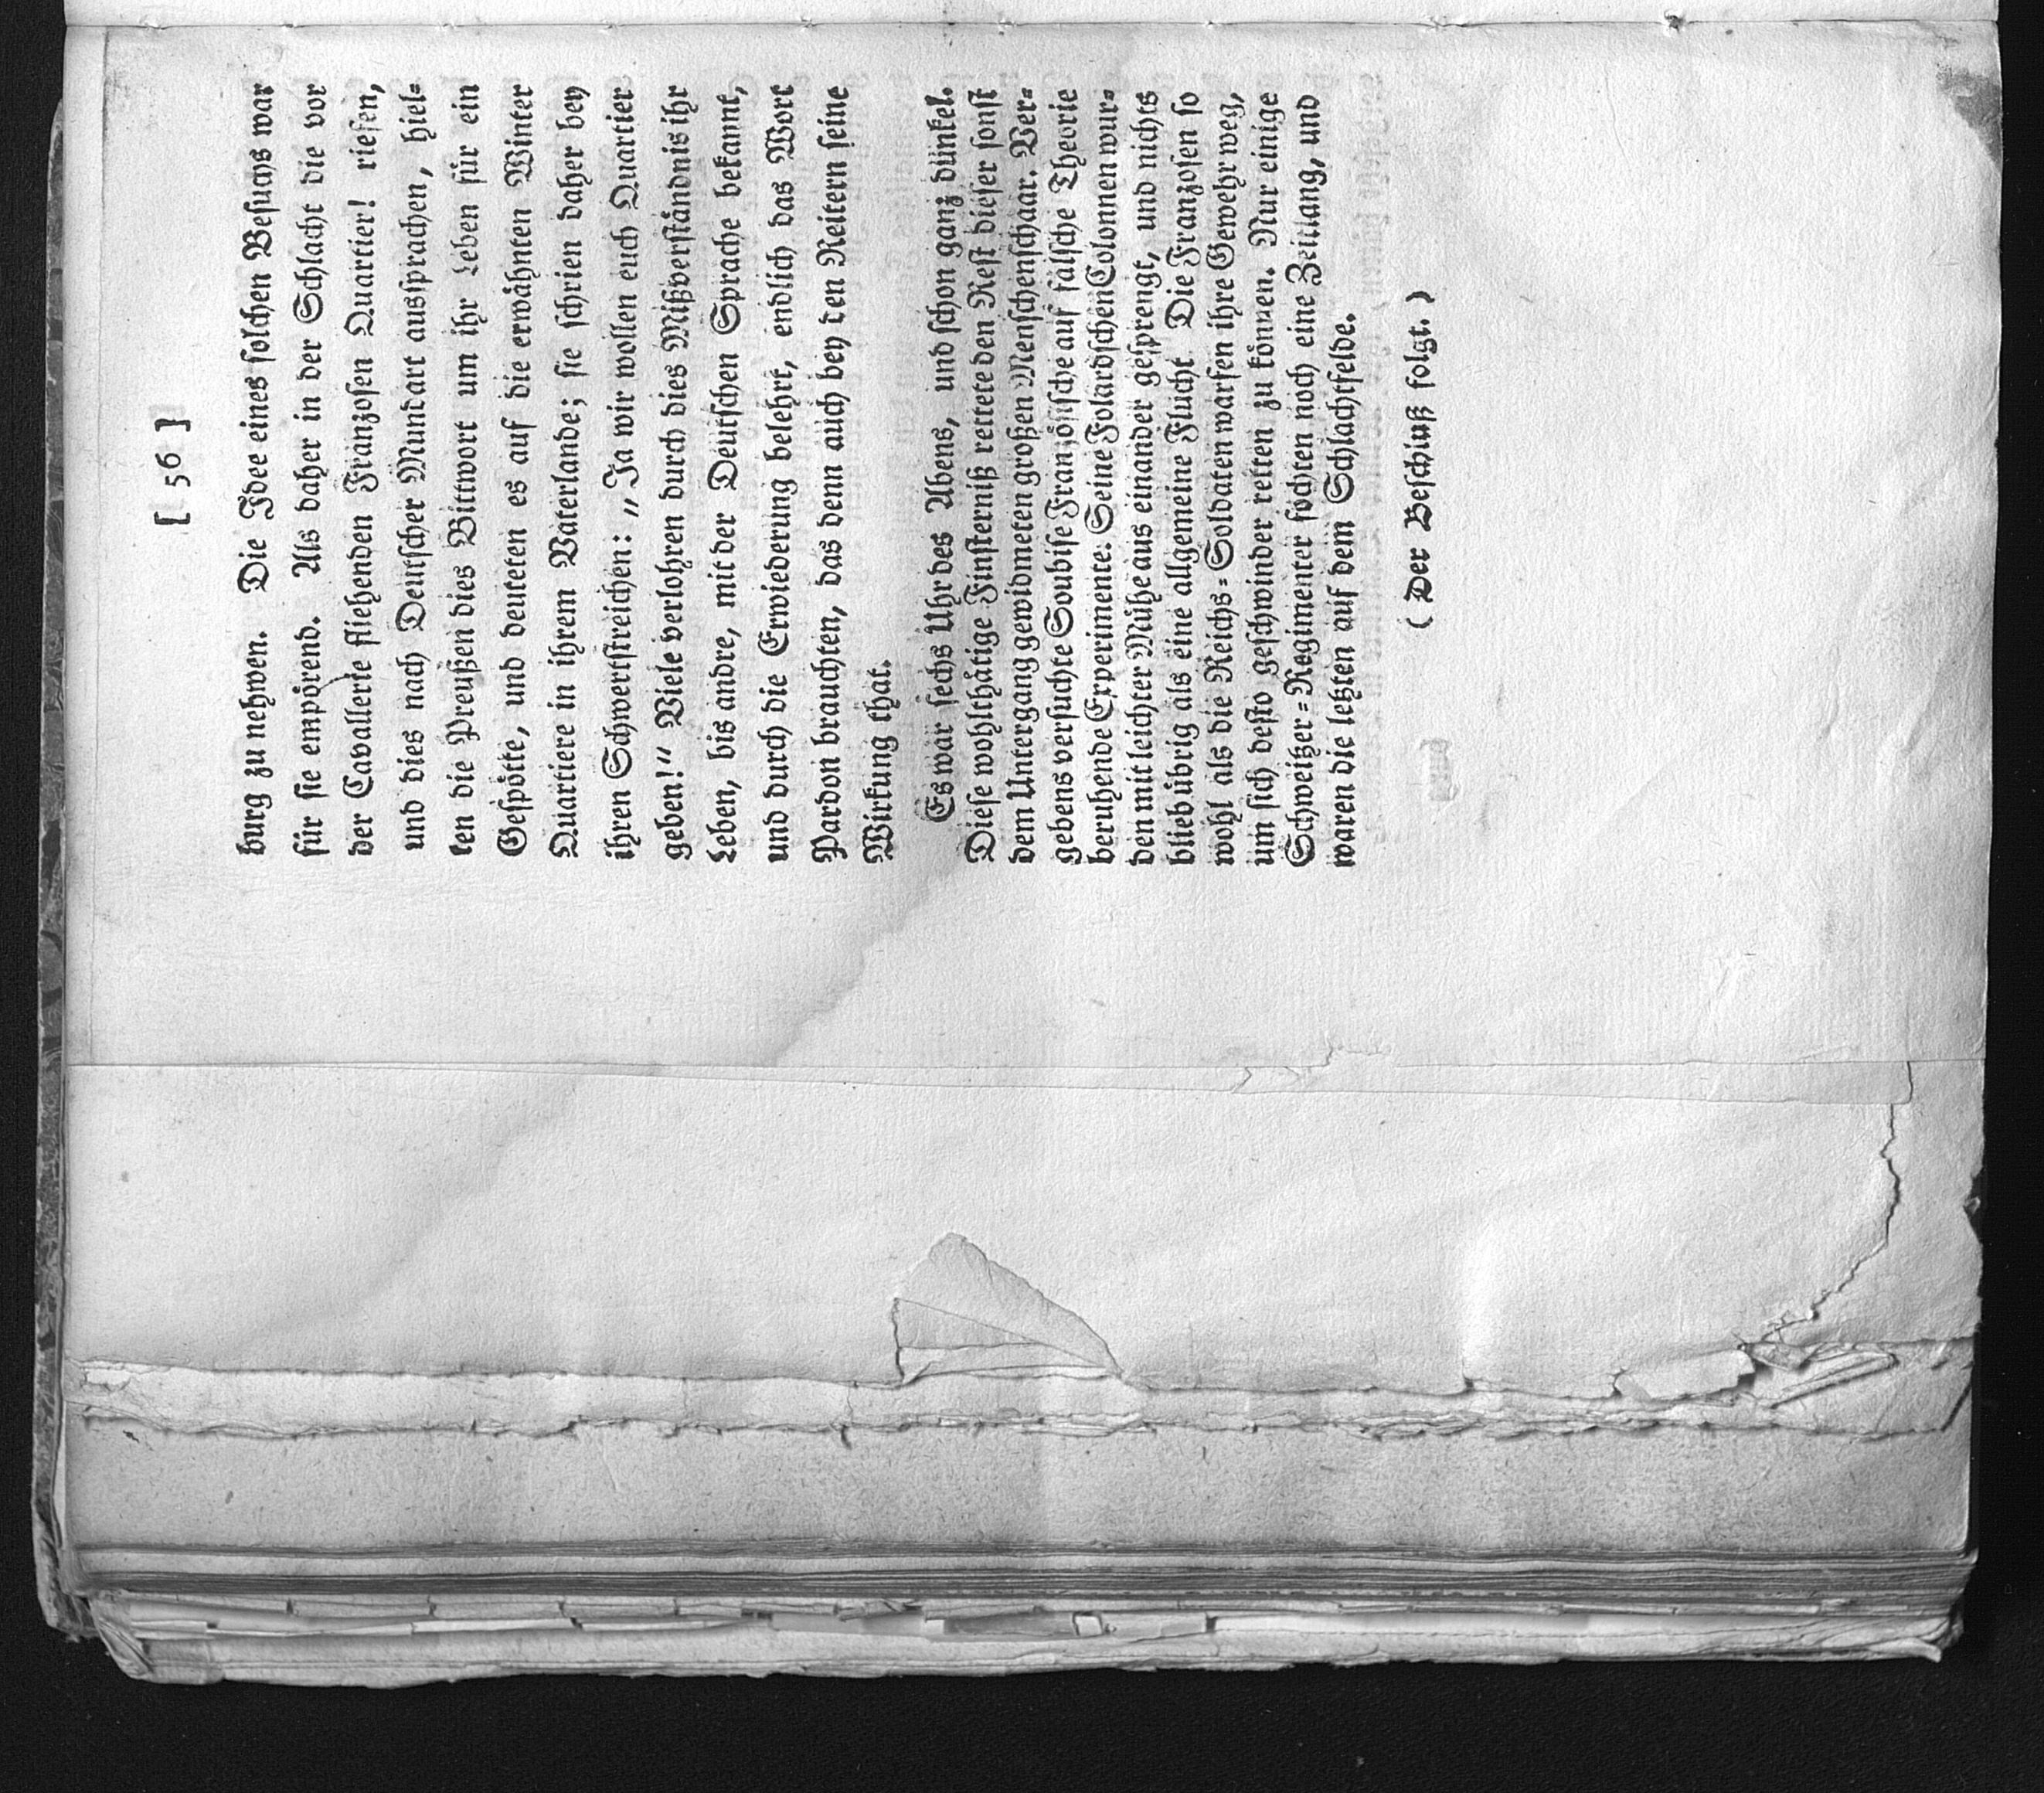 [ 56 ]
burg zu nehmen. Die Idee eines solchen Besuchs war
für sie empörend. Als daher in der Schlacht die vor
der Cavallerie fliehenden Franzosen Quartier! riefen,
und dies nach Deutscher Mundart aussprachen, hiel=
ten die Preußen dies Bittwort um ihr Leben für ein
Gespötte, und deuteten es auf die erwähnten Winter
Quartiere in ihrem Vaterlande; sie schrien daher bey
ihren Schwertstreichen: „Ja wir wollen euch Quartier
geben!“ Viele verlohren durch dies Mißverständnis ihr
Leben, bis andre, mit der Deutschen Sprache bekannt,
und durch die Erwiederung belehrt, endlich das Wort
Pardon brauchten, das denn auch bey den Reitern seine
Wirkung that.
Es war sechs Uhr des Abens, und schon ganz dünkel.
Diese wohlthätige Finsterniß rettete den Rest dieser sonst
dem Untergang gewidmeten großen Menschenschaar. Ver=
gebens versuchte Soubise Französische auf falsche Theorie
beruhende Experimente. Seine Folardschen Colonnen wur=
den mit leichter Mühe aus einander gesprengt, und nichts
blieb übrig als eine allgemeine Flucht. Die Franzosen so
wohl als die Reichs=Soldaten warfen ihre Gewehr weg,
um sich desto geschwinder retten zu können. Nur einige
Schweitzer=Regimenter fochten noch eine Zeitlang, und
waren die letzten auf dem Schlachtfelde.
( Der Beschluß folgt. )